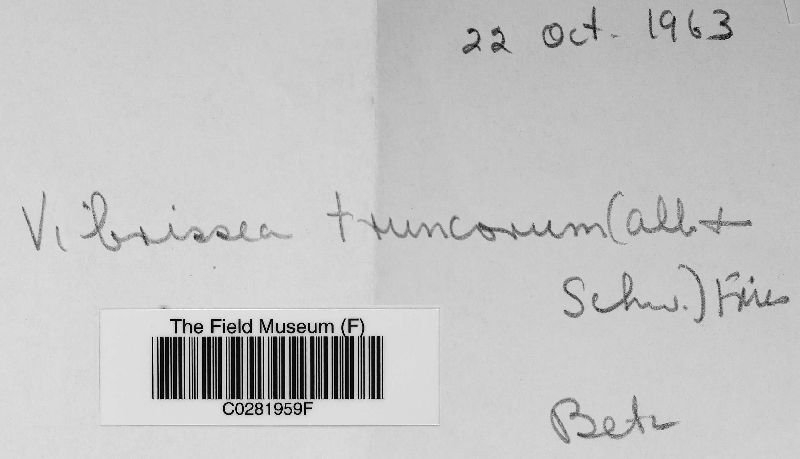 22 Oct. 1963
Vibrissea truncorum (Alb +
Schw.) Fries
The Field Museum (F)
C0281959F